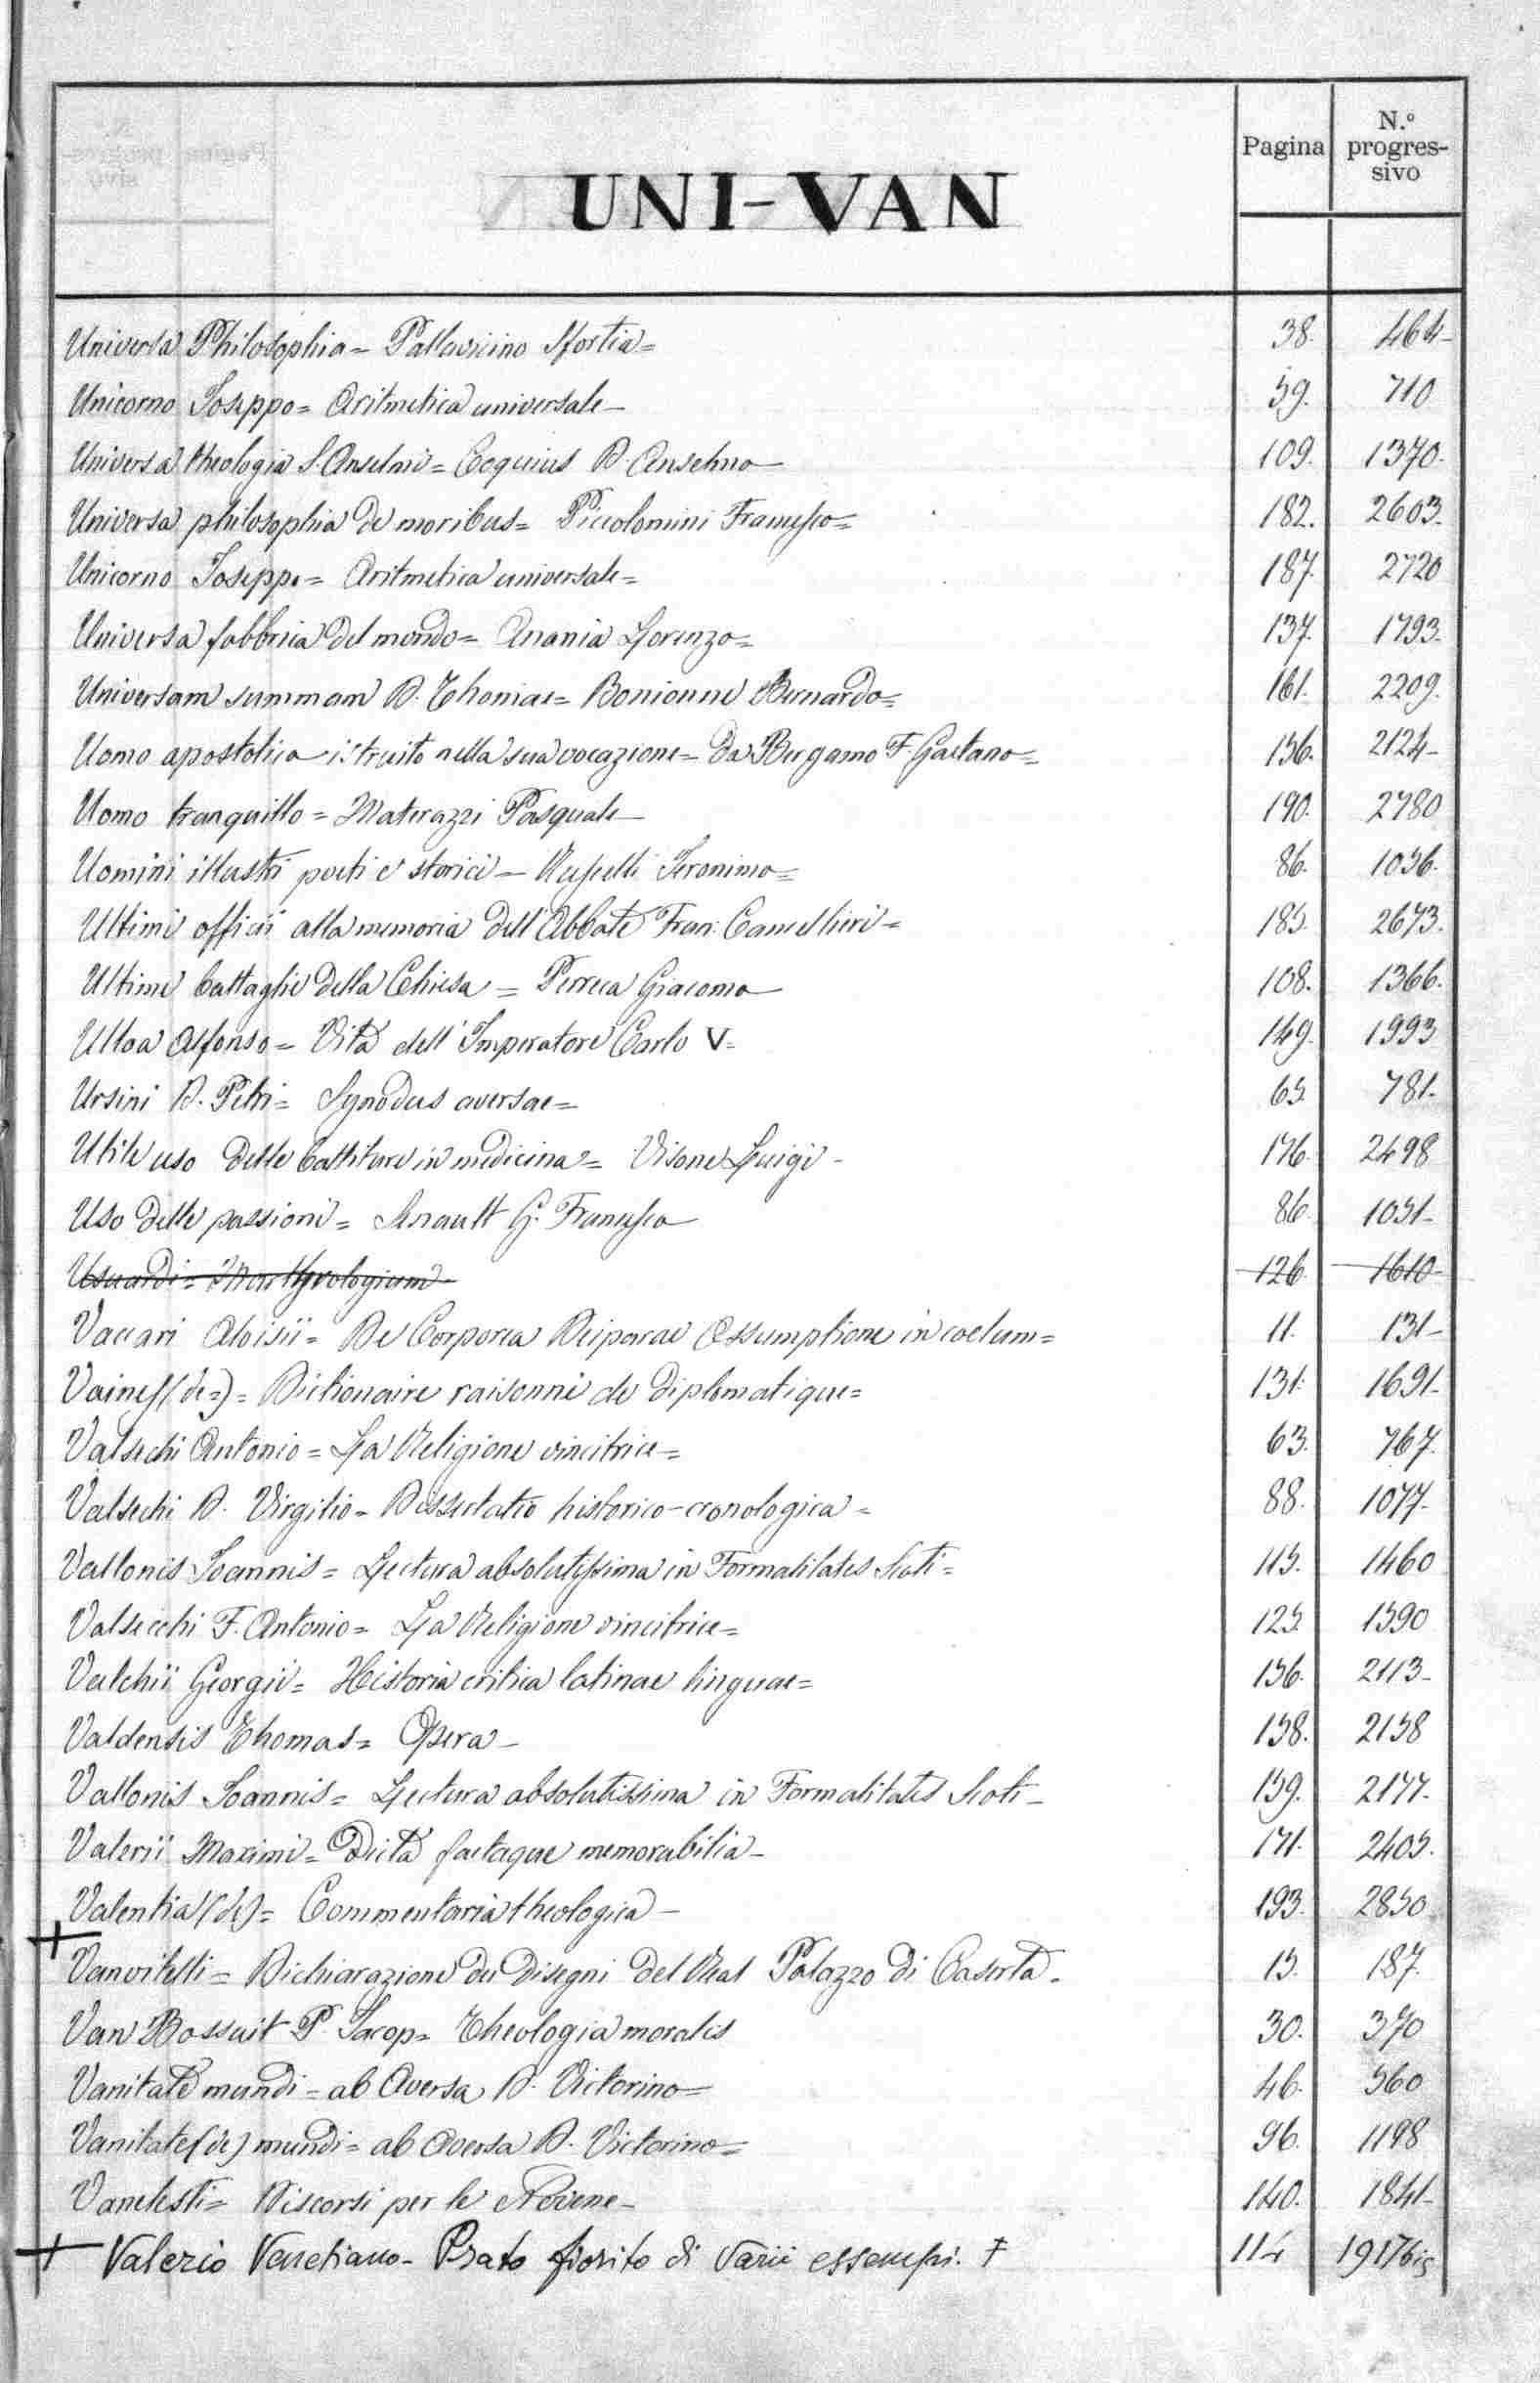 Pagina N.º progres-sivo
UNI-VAN
Universa Philosophia = Pallavicino Sfortia = 38. 464 -
Unicorno Joseppo = Aritmetica universale - 59. 710
Universa theologia S. Anselmi = Eequius D. Anselmo - 109. 1370.
Universa philosophia de moribus = Piccolomini Francesco = 182. 2603.
Unicorno Joseppo = Aritmetica universale = 187. 2720
Universa fabbrica del mondo = Anania Lorenzo = 137. 1793.
Universam summam D. Thomae = Bonienne Bernardo = 161. 2209.
Uomo apostolico istruito nella sua vocazione = Da Bergamo F. Gaetano = 156. 2124 -
Uomo tranquillo = Materazzi Pasquale - 190. 2780
Uomini illustri poeti e storici - Ruscelli Jeronimo = 86. 1056.
Ultimi officii alla memoria dell'Abbate Fran: Cancellieri = 185. 2673.
Ultime battaglie della Chiesa = Perreca Giacomo - 108. 1366.
Ulloa Alfonso = Vita dell'Imperatore Carlo V = 149. 1993
Ursini D. Petri = Synodus aversae = 65. 781.
Utile uso delle battiture in medicina = Visone Luigi - 176. 2498
Uso delle passioni = Senault G. Francesco 86. 1051 -
Usuardi = Marthyrologium 126 1610
Vaccari Aloisii = De Corporea Deiparae Assumptione in coelum = 11. 131 -
Vaines (de =) = Dictionaire raisonné de diplomatique = 131. 1691 -
Valsechi Antonio = La Religione vincitrice = 63. 767.
Valsechi D. Virgilio = Dissertatio historico-cronologica = 88. 1077.
Vallonis Joannis = Lectura absolutissima in Formalitates Scoti = 115. 1460
Valsecchi F. Antonio = La Religione vincitrice = 125. 1590
Valchii Georgii = Historia critica latinae linguae = 156. 2113 -
Valdensis Thomas = Opera - 158. 2158
Vallonis Joannis = Lectura absolutissima in Formalitates Scoti - 159. 2177.
Valerii Maximi = Dicta factaque memorabilia - 171. 2405.
Valentia (de) = Commentaria theologica - 193. 2850
+ Vanvitelli = Dichiarazione dei disegni del Real Palazzo di Caserta. 15. 187.
Van Bossuit P. Jacop = Theologia moralis 30. 370
Vanitate mundi = ab Aversa D. Victorino = 46. 560
Vanitate (de) mundi = ab Aversa D. Victorino = 96. 1198
Vanelesti = Discorsi per le Novene - 140. 1841 -
+ Valerio Venetiano - Prato fiorito di varii essempi. ‡ 114 1917 bis